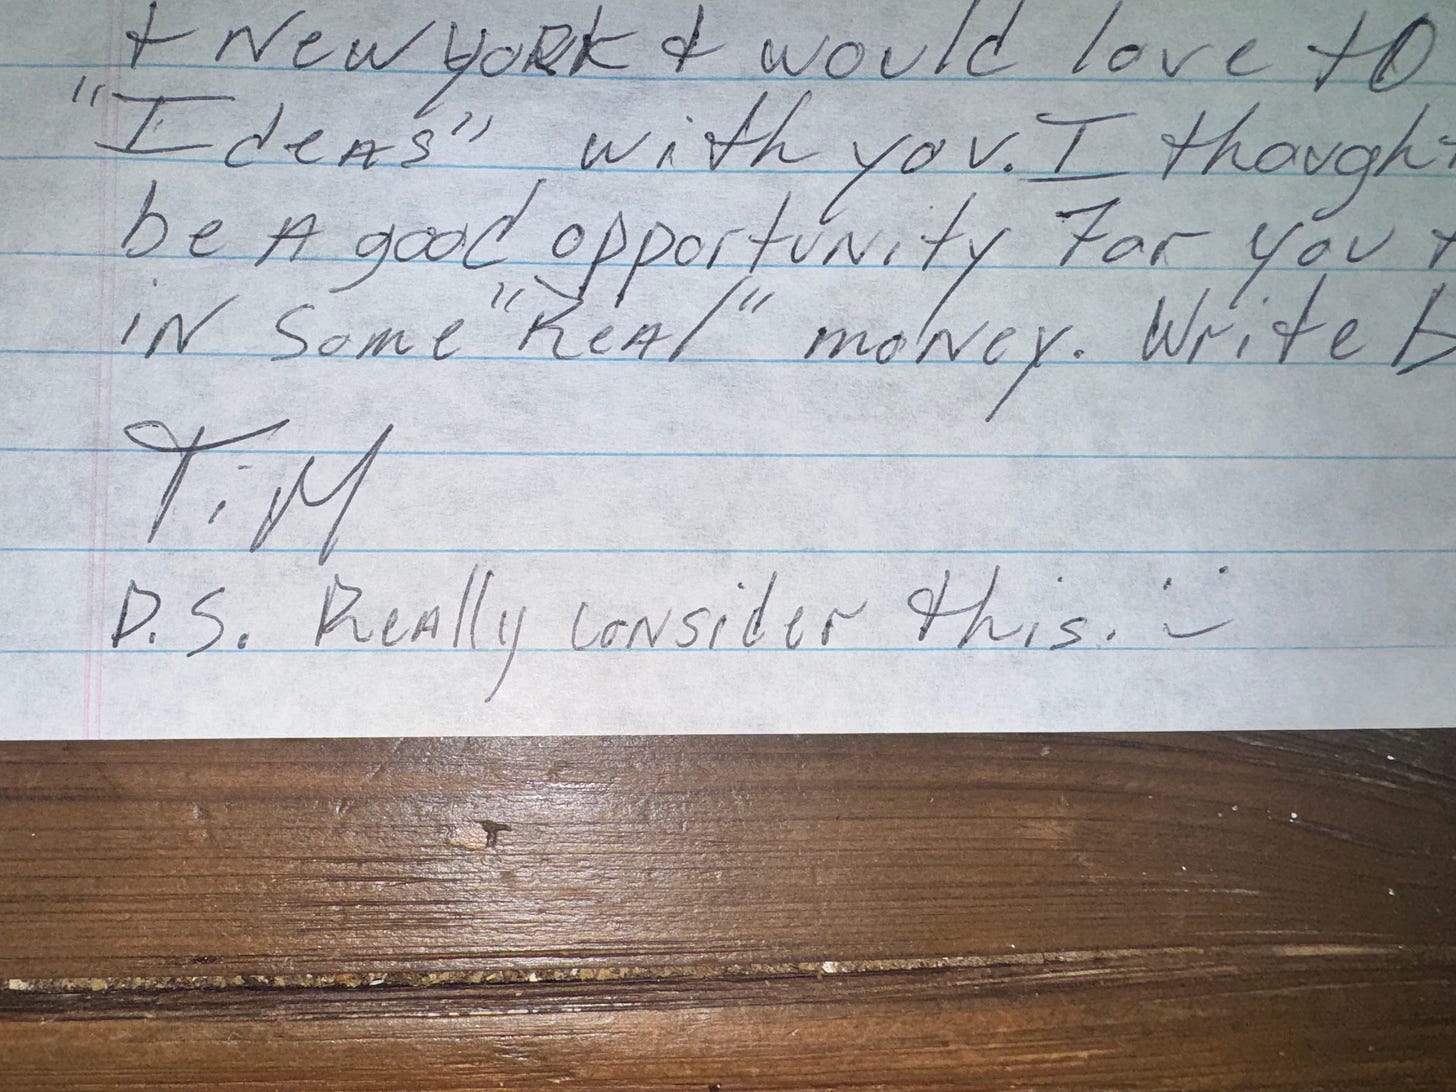 + New York + would love to
"Ideas" with you. I thought
be A good opportunity For you t
in Some "Real" money. Write b
Tim
P.S. Really consider this. :-)